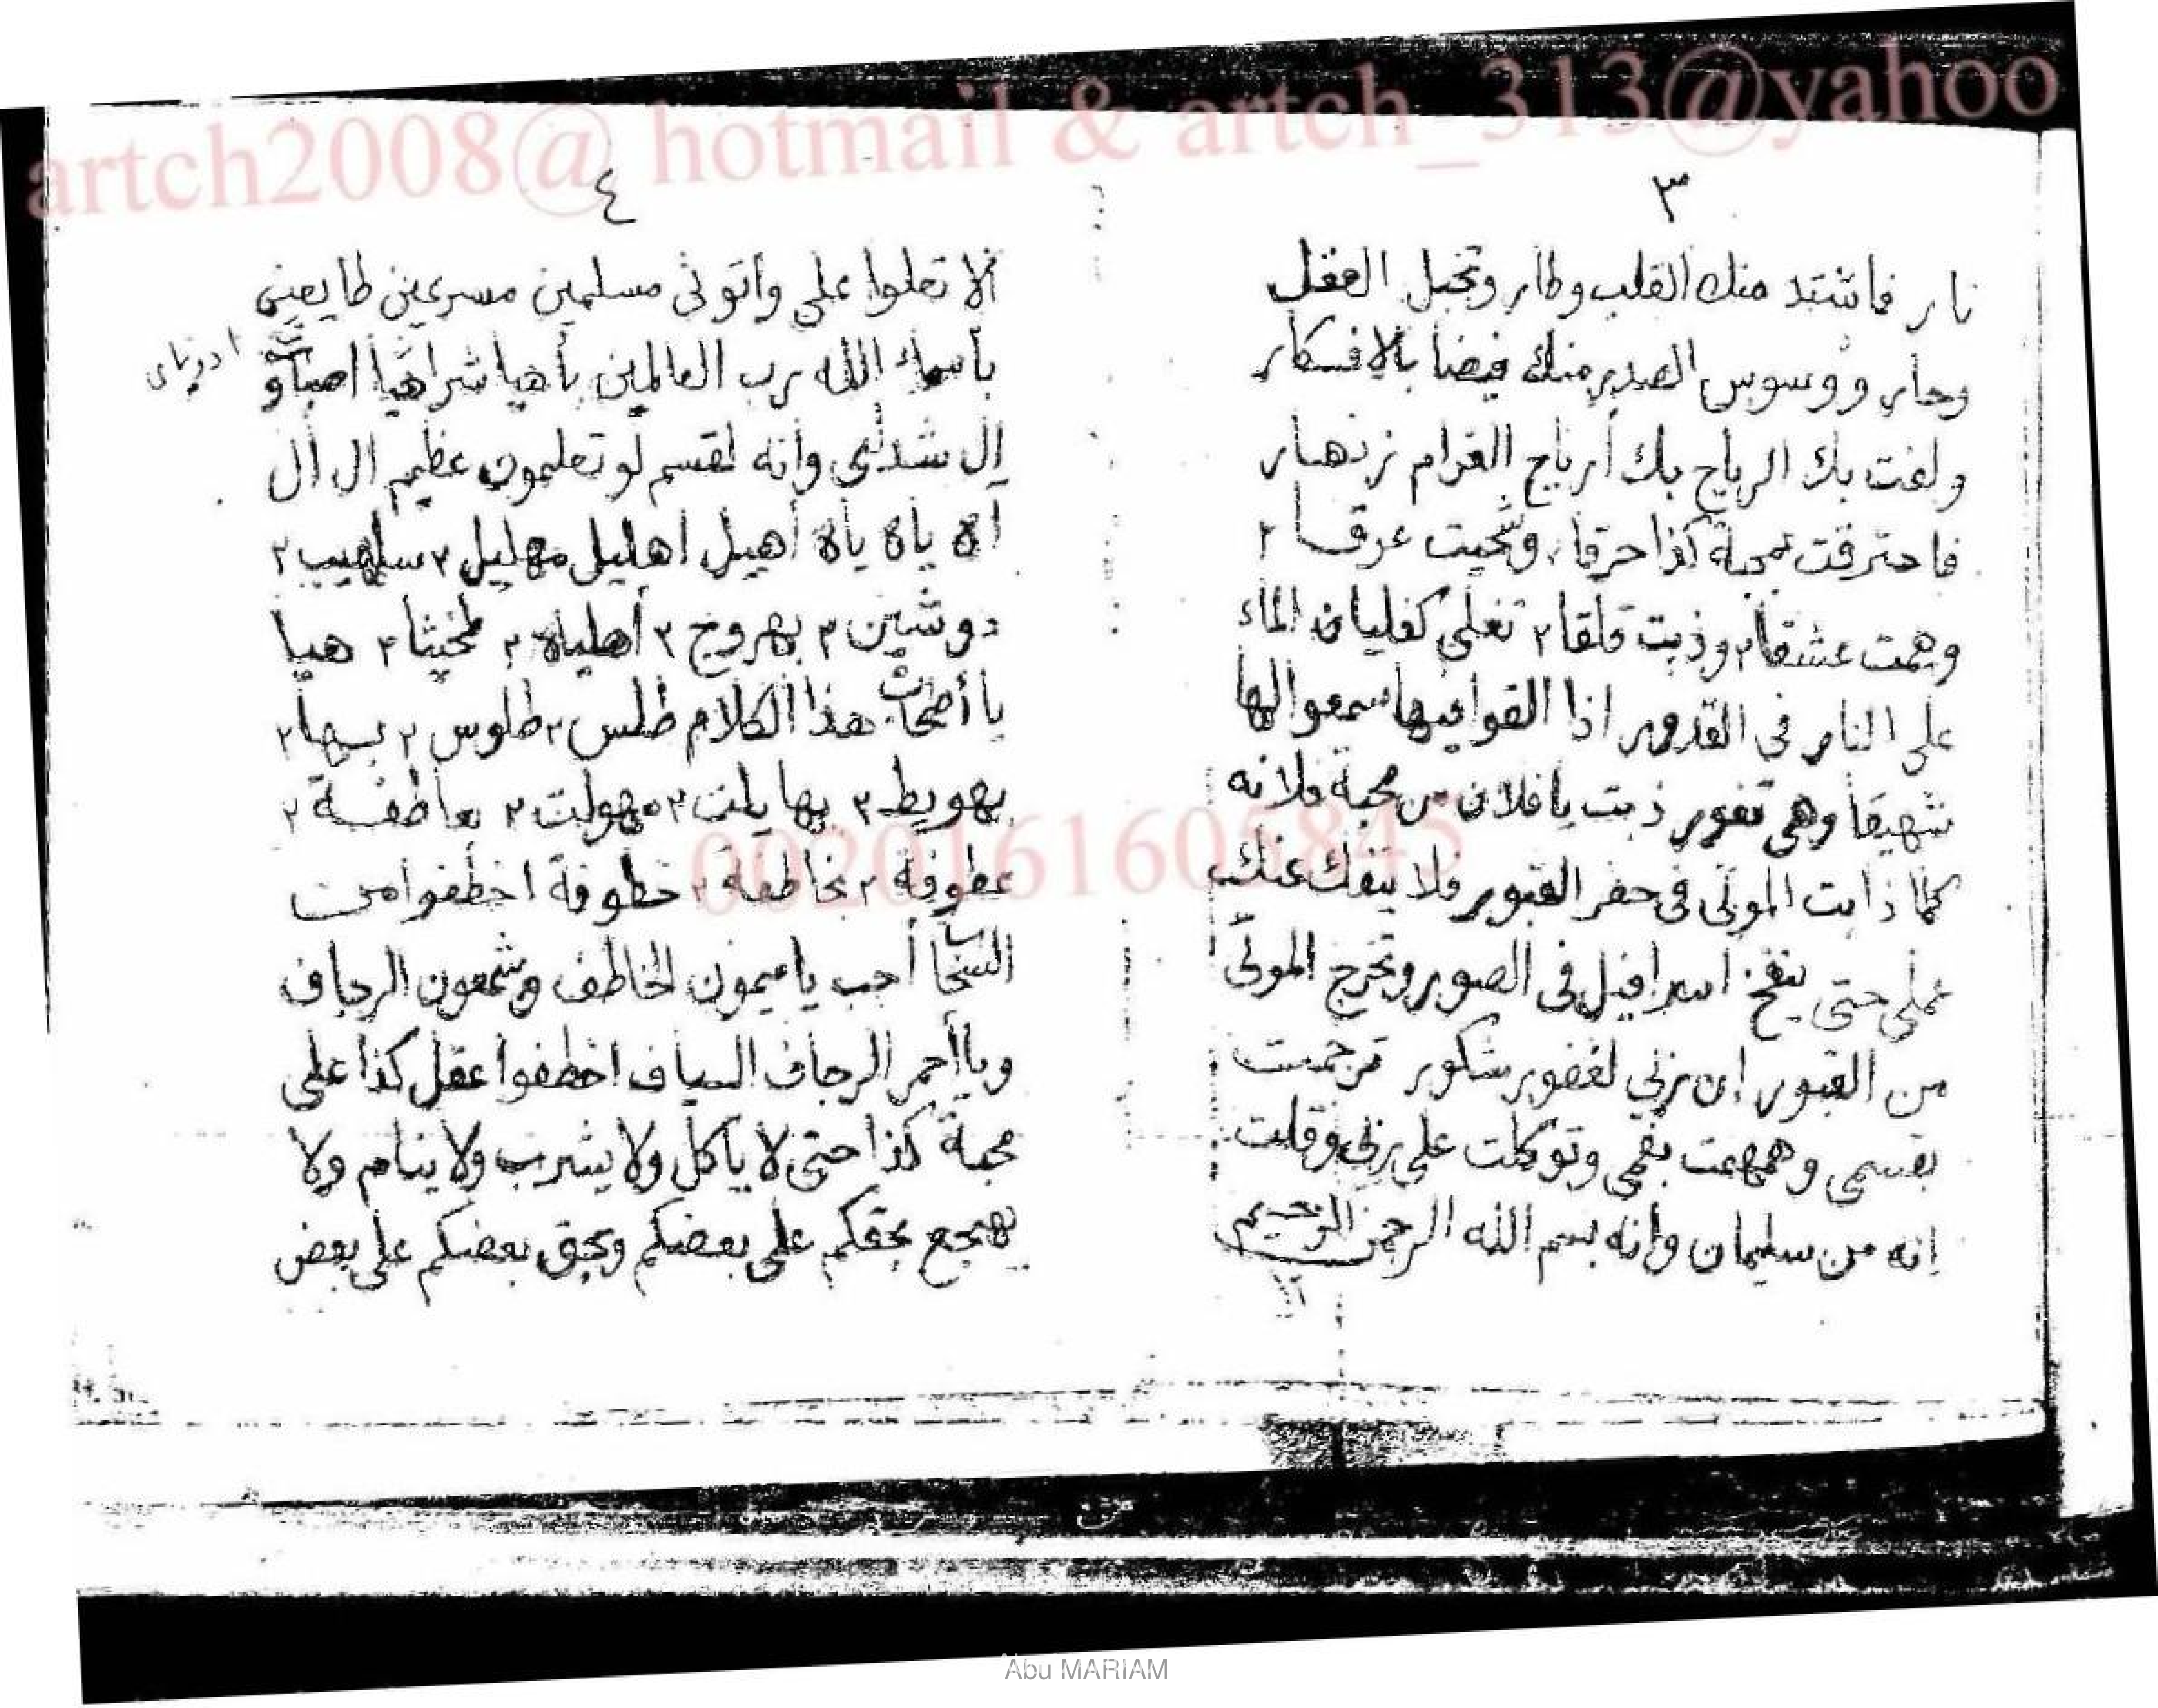 artch2008@ hotmail & artch_313@yahoo
٣
نار فاشتد منك القلب وطار وتخبل العقل
وحار ووسوس الصدر منك فيضا بالافكار
ولفت بك الرياح بك أرياح الغرام
فاحترقت بمحبة كذا حرقا وعرقا ٢
وهمت عشقا ٢ وذبت قلقا ٢ تغلى كغليان الماء
على النار فى القدور اذا القوا فيها سمعوا لها
شهيقا وهى تفور ذبت يا فلان من محبة فلانه
كما ذابت الموتى فى حفر القبور فلا ينفك عنك
عملى حتى ينفخ اسرافيل فى الصور وتخرج الموتى
من القبور إن ربي لغفور شكور ترجمت
بقسمى وهمهمت بفمى وتوكلت على ربى وقلت
إنه من سليمان وإنه بسم الله الرحمن الرحيم
٤
ألا تعلوا على وأتونى مسلمين مسرعين طايعين
بأسماء الله رب العالمين بأهيا شراهيا
ادوناى
ال شداى وانه لقسم لو تعلمون عظيم ال ال
اه ياه ياه أهيل اهليل مهليل ٢
دوشين ٢ بهروج ٢ أهلياه ٢ هيا
يا هذا الكلام طلس ٢ طلوس ٢ بسها ٢
بهويط ٢ بهايلت ٢ مهولت ٢ بعاطفة ٢
عطوفة ٢ بخاطفة ٢ خطوفة اخطفوا من
أجب يا ميمون الخاطف وشمعون الرجاف
ويا أحمر الرجاف السياف اخطفوا عقل كذا على
محبة كذا حتى لا ياكل ولا يشرب ولا ينام ولا
يهجع بحقكم على بعضكم وبحق بعضكم على بعض
00201616605845
Abu MARIAM